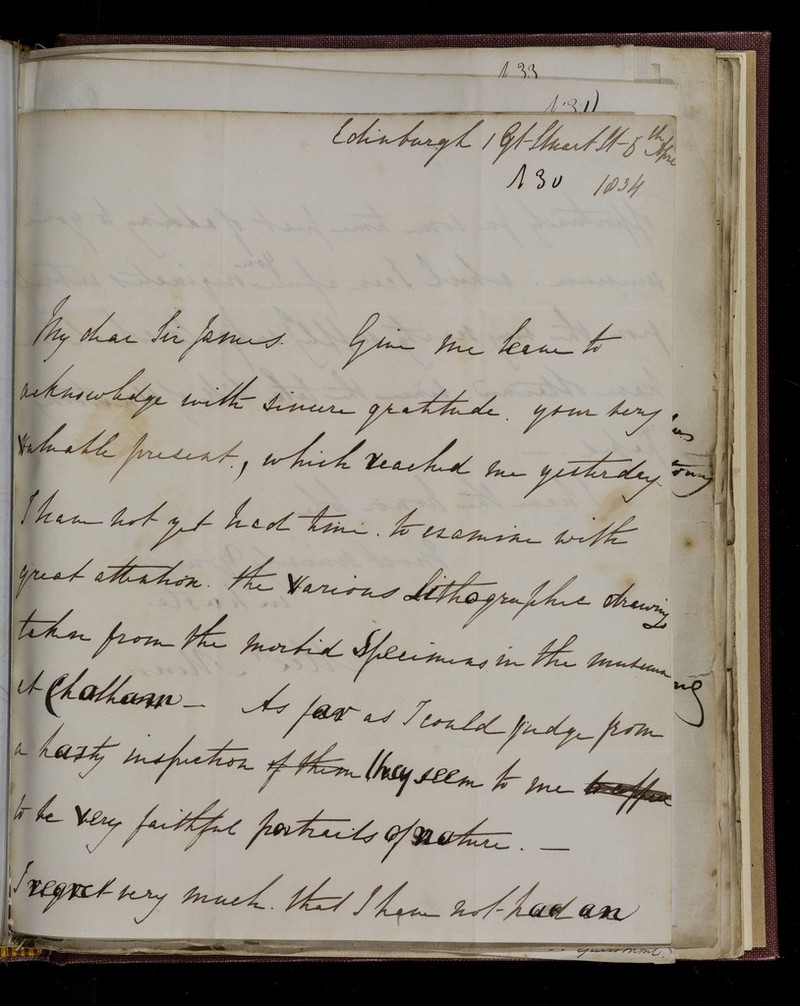 N 33
N 31)
Edinburgh 1 Gt Stuart St - 5th Apr
N 30 1834
My dear Sir James. Give me leave to
acknowledge with sincere gratitude. your very
valuable present., which reached me yesterday.
I have not yet had time. to examine with
great attention. the various lithographic drawings
taken from the morbid Specimens in the museum
at Chatham - As far as I could judge from
a hasty inspection of them they seem to me
to be very faithful portraits of nature. -
I regret very much. that I have not had an